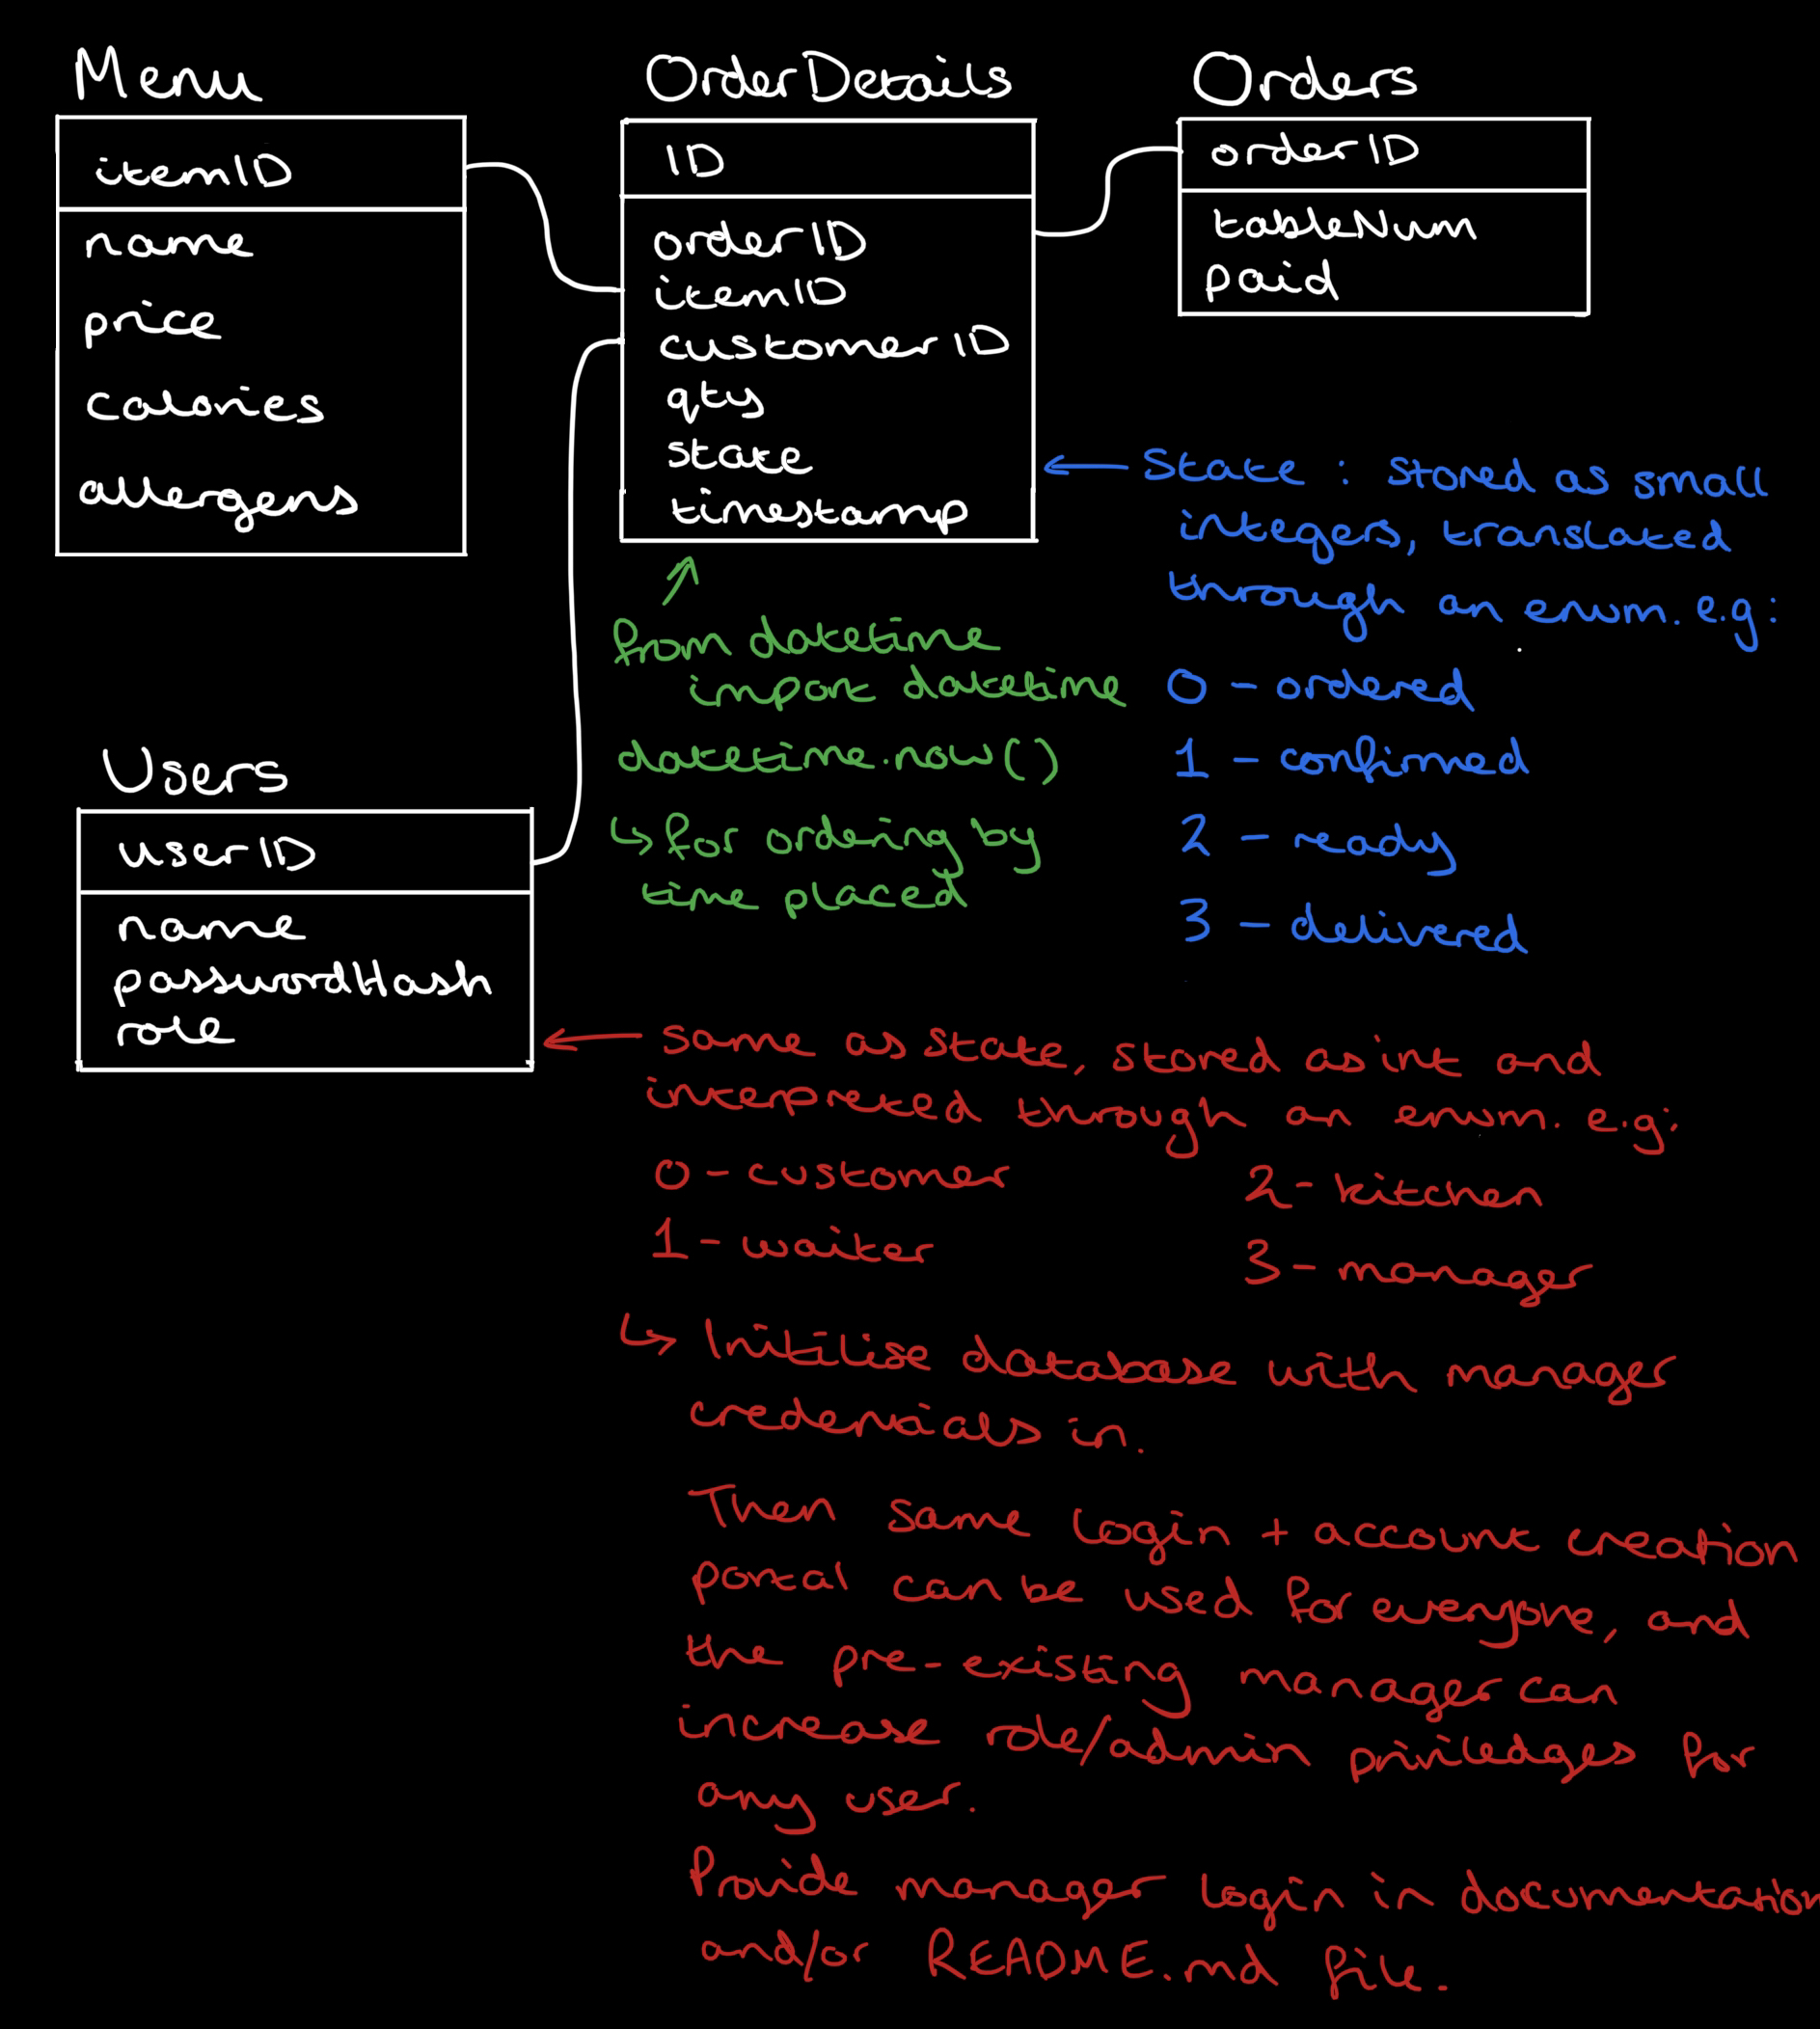 Menu
itemID
name
price
calories
allergens
OrderDetails
ID
orderID
itemID
customerID
qty
state
timestamp
Orders
orderID
tableNum
paid
State : stored as small
integers, translated
through an enum. e.g:
0 - ordered
1 - confirmed
2 - ready
3 - delivered
from datetime
import datetime
datetime.now()
↳ for ordering by
time placed
Users
userID
name
passwordHash
role
same as state, stored as int and
interpreted through an enum. e.g:
0 - customer
1 - waiter
2 - kitchen
3 - manager
↳ Initilise database with manager
credentials in.
Then same login + account creation
portal can be used for everyone, and
the pre-existing manager can
increase role/admin priviledges for
any user.
Provide manager login in documentation
and/or README.md file.